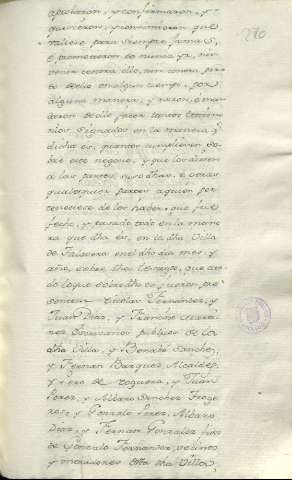 aprobaron, y confirmaron, y
quisieron, y consintieron que
valiese para siempre jamas,
é prometieron de nunca yr, nin
venir contra ello, nin contra parte
dello en algun tiempo, por
alguna manera, y razon, é man
daron dello facer tantos testimo
nios signados en la manera q
dicha es, quantos cumplieren so
bre este negocio, y que los diesen
a las partes, susodhas, é otras
qualesquier partes aquien per
teneciese de los haber, que fue
fecho, y pasado todo en la mane
ra que dha es, en la dha Villa
de Talavera en el dho dia mes, y
año, sobre dho. Testigos, que a to
do lo que sobre dho es fueron pre
sentes
Fernandez, y
Juan Diaz, y Francho
nez Escrivanos publicos de la
dha Villa, y Benito Sanchez,
y Fernan Bazquez, Alcaldes,
y de Noguera, y Juan
Perez, y Albaro Sanchez
y Gonzalo Perez, Albaro
Diaz, y Fernan Gonzalez hijo
de Gonzalo Fernandez, vecinos
y moradores desta dha Villa,